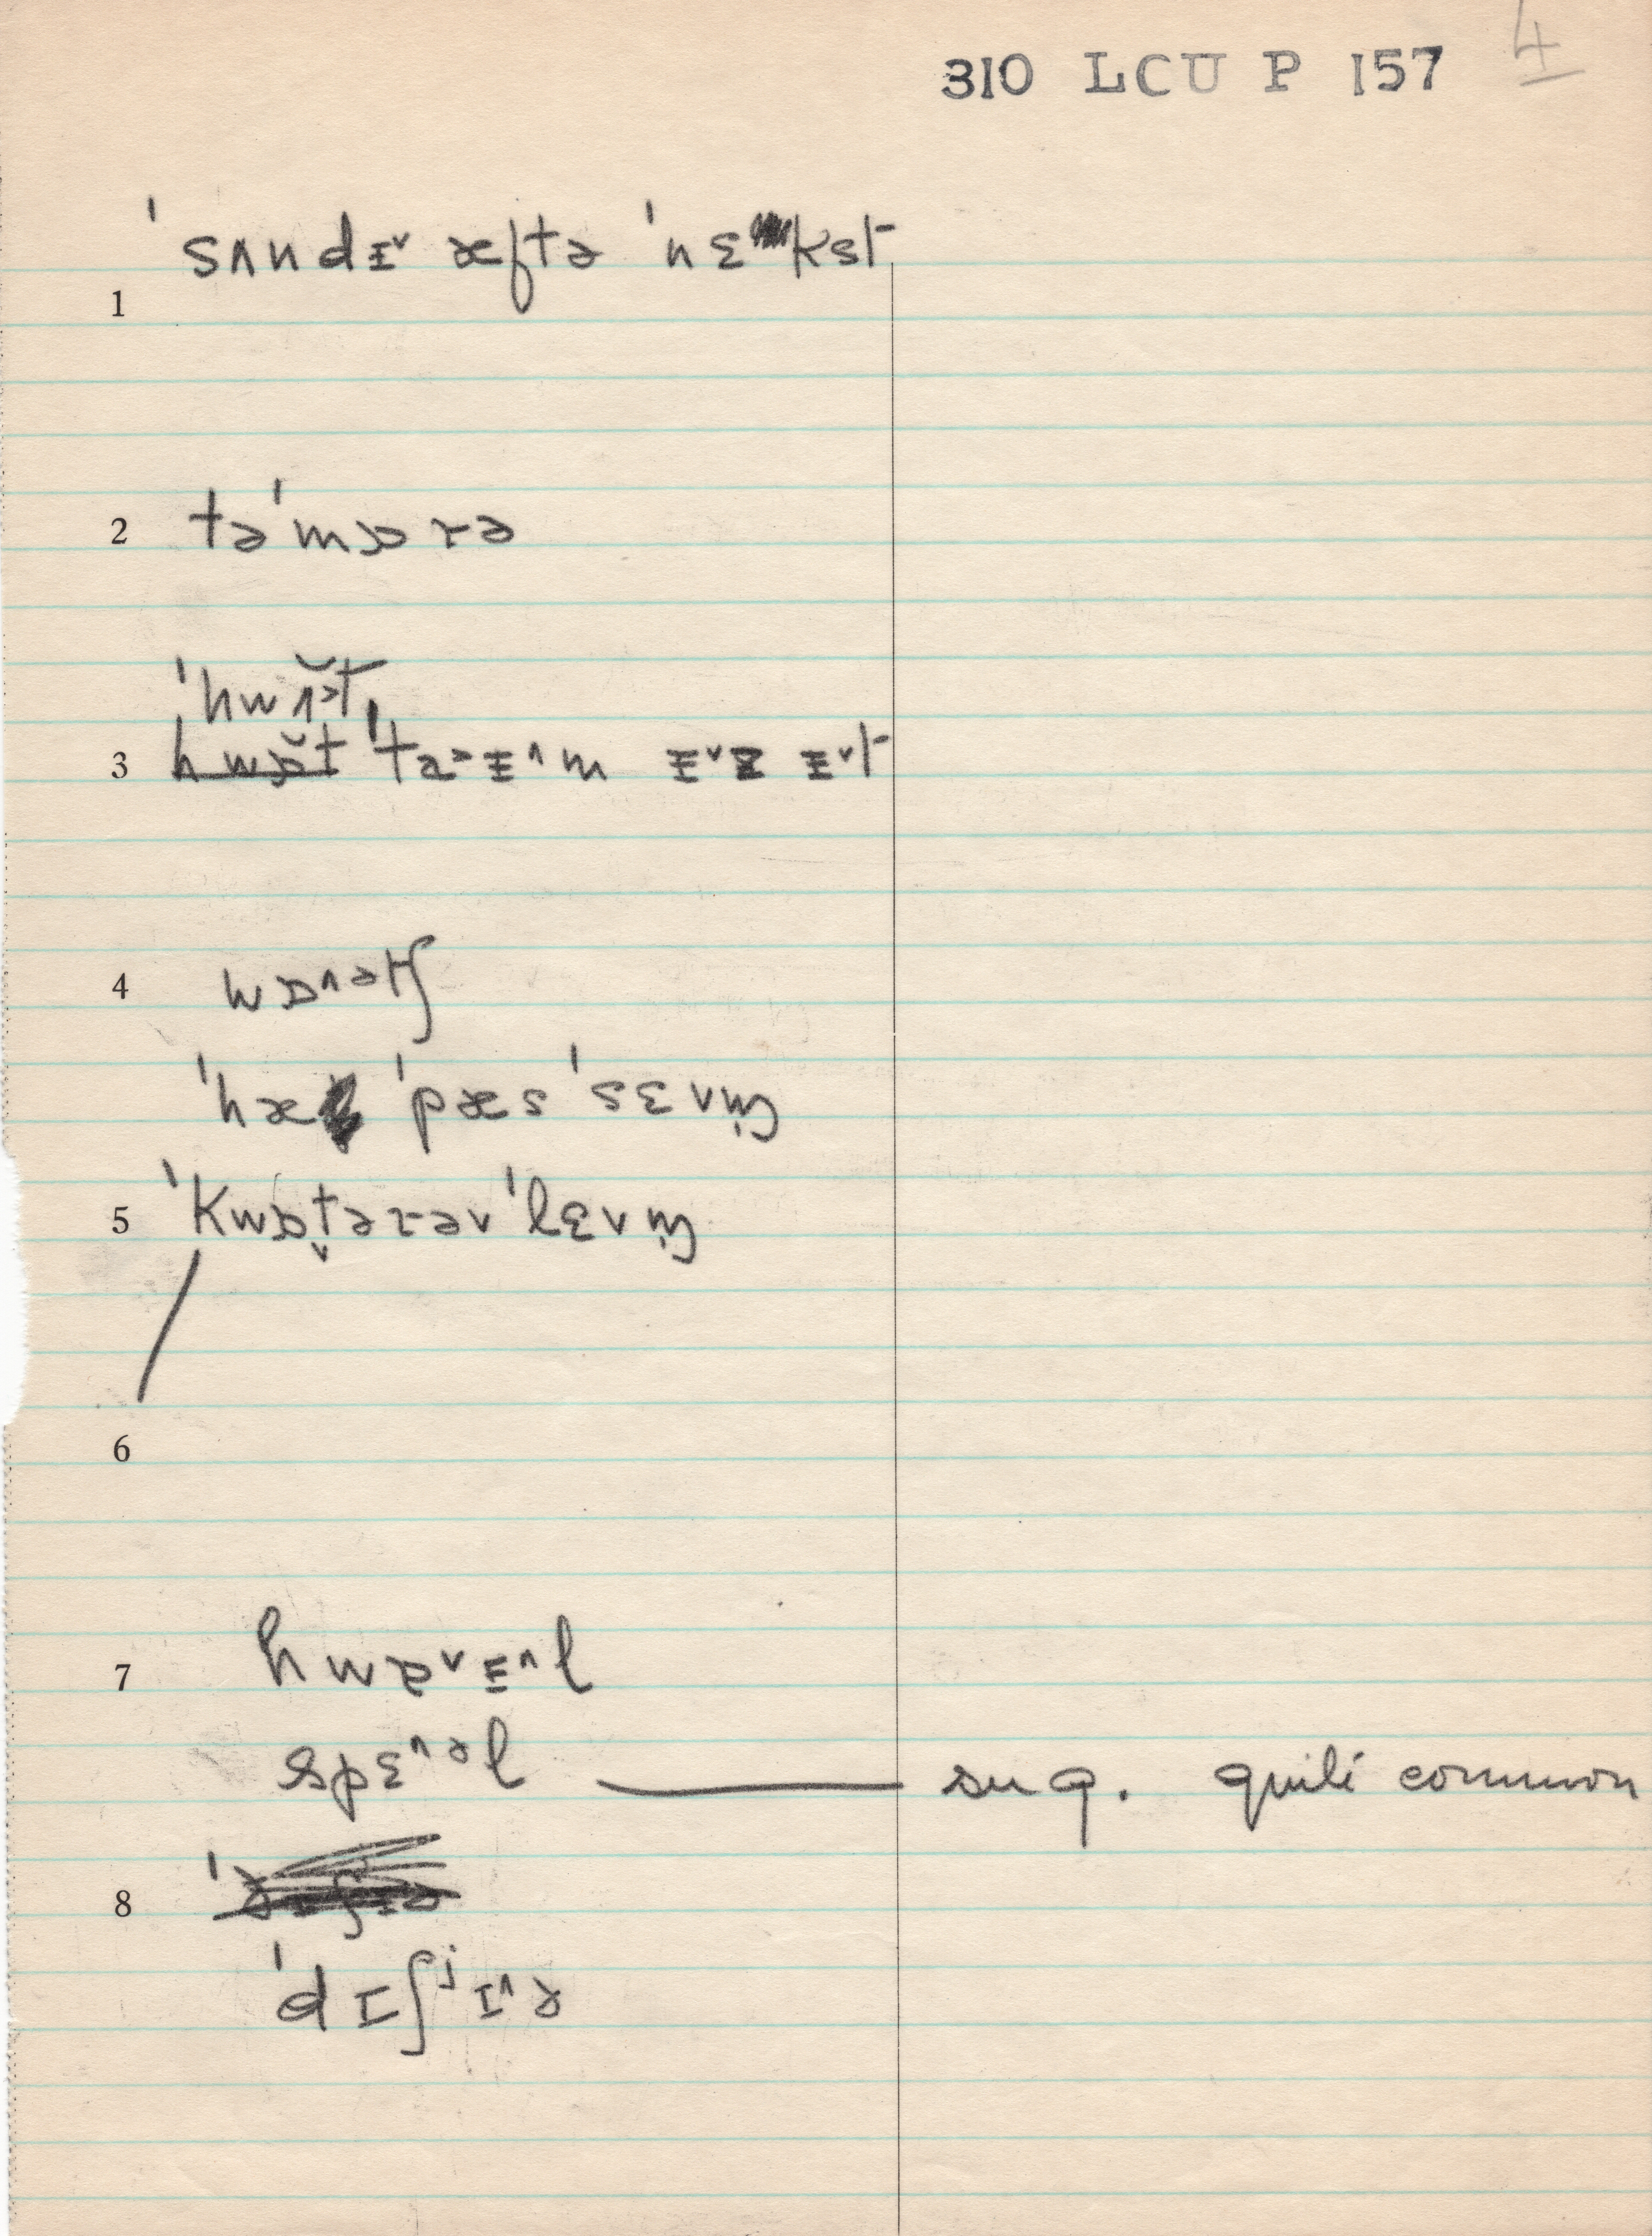 310 LCU P 157 4
ˈsʌndɪ˅ æftə ˈnɛkst
1
2 təˈmɒrə
ˈhwʌ˃̆t
3 hwɒ̆t ˈta˃ɪ˄m ɪ˅z ɪ˅t
4 wɒ˄ətʃ
ˈhæ ˈpæs ˈsɛvm̩
5 ˈkwɒt̬ərəv ˈlɛvm̩
6
7 hwɐ˅ɪ˄l
spɛ˄əl — sug. quite common
8
ˈdɪʃʲɪ˄ə